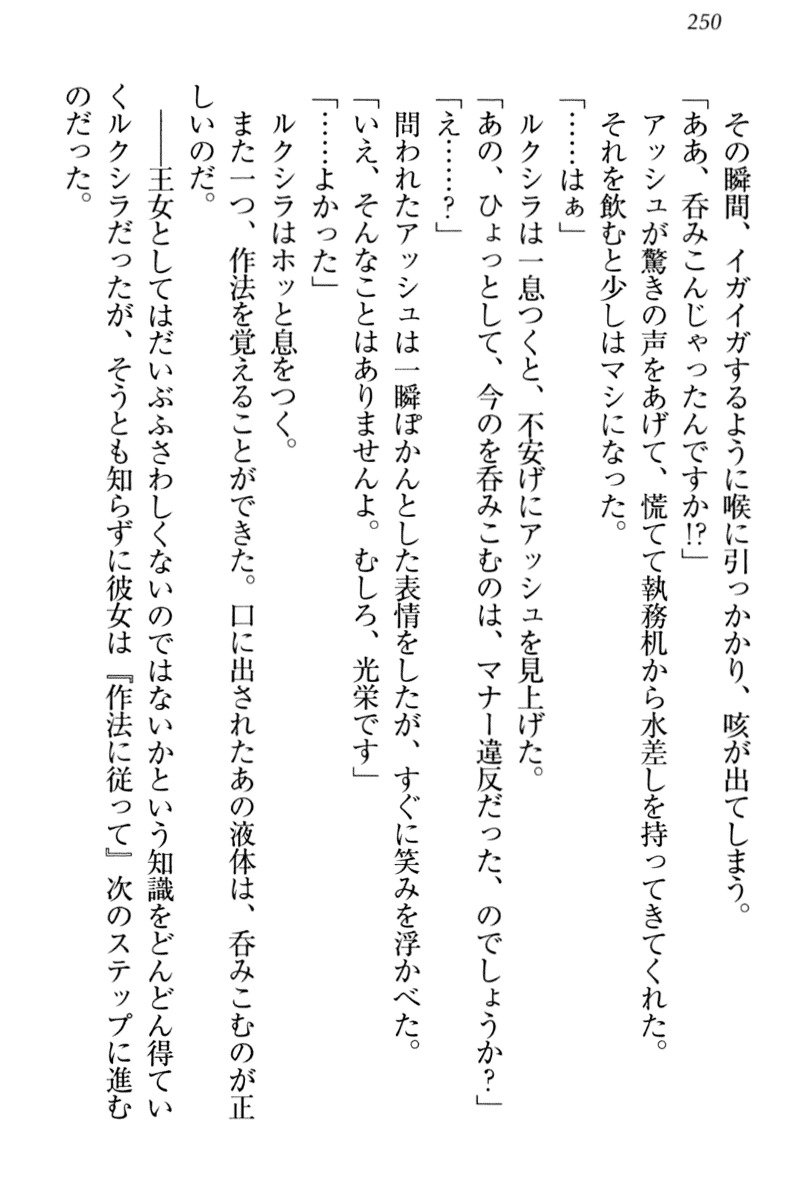 250
その瞬間、イガイガするように喉に引っかかり、咳が出てしまう。
「ああ、呑みこんじゃったんですか!?」
アッシュが驚きの声をあげて、慌てて執務机から水差しを持ってきてくれた。
それを飲むと少しはマシになった。
「……はぁ」
ルクシラは一息つくと、不安げにアッシュを見上げた。
「あの、ひょっとして、今のを呑みこむのは、マナー違反だった、のでしょうか？」
「え……？」
問われたアッシュは一瞬ぽかんとした表情をしたが、すぐに笑みを浮かべた。
「いえ、そんなことはありませんよ。むしろ、光栄です」
「……よかった」
ルクシラはホッと息をつく。
また一つ、作法を覚えることができた。口に出されたあの液体は、呑みこむのが正
しいのだ。
――王女としてはだいぶふさわしくないのではないかという知識をどんどん得てい
くルクシラだったが、そうとも知らずに彼女は『作法に従って』次のステップに進む
のだった。